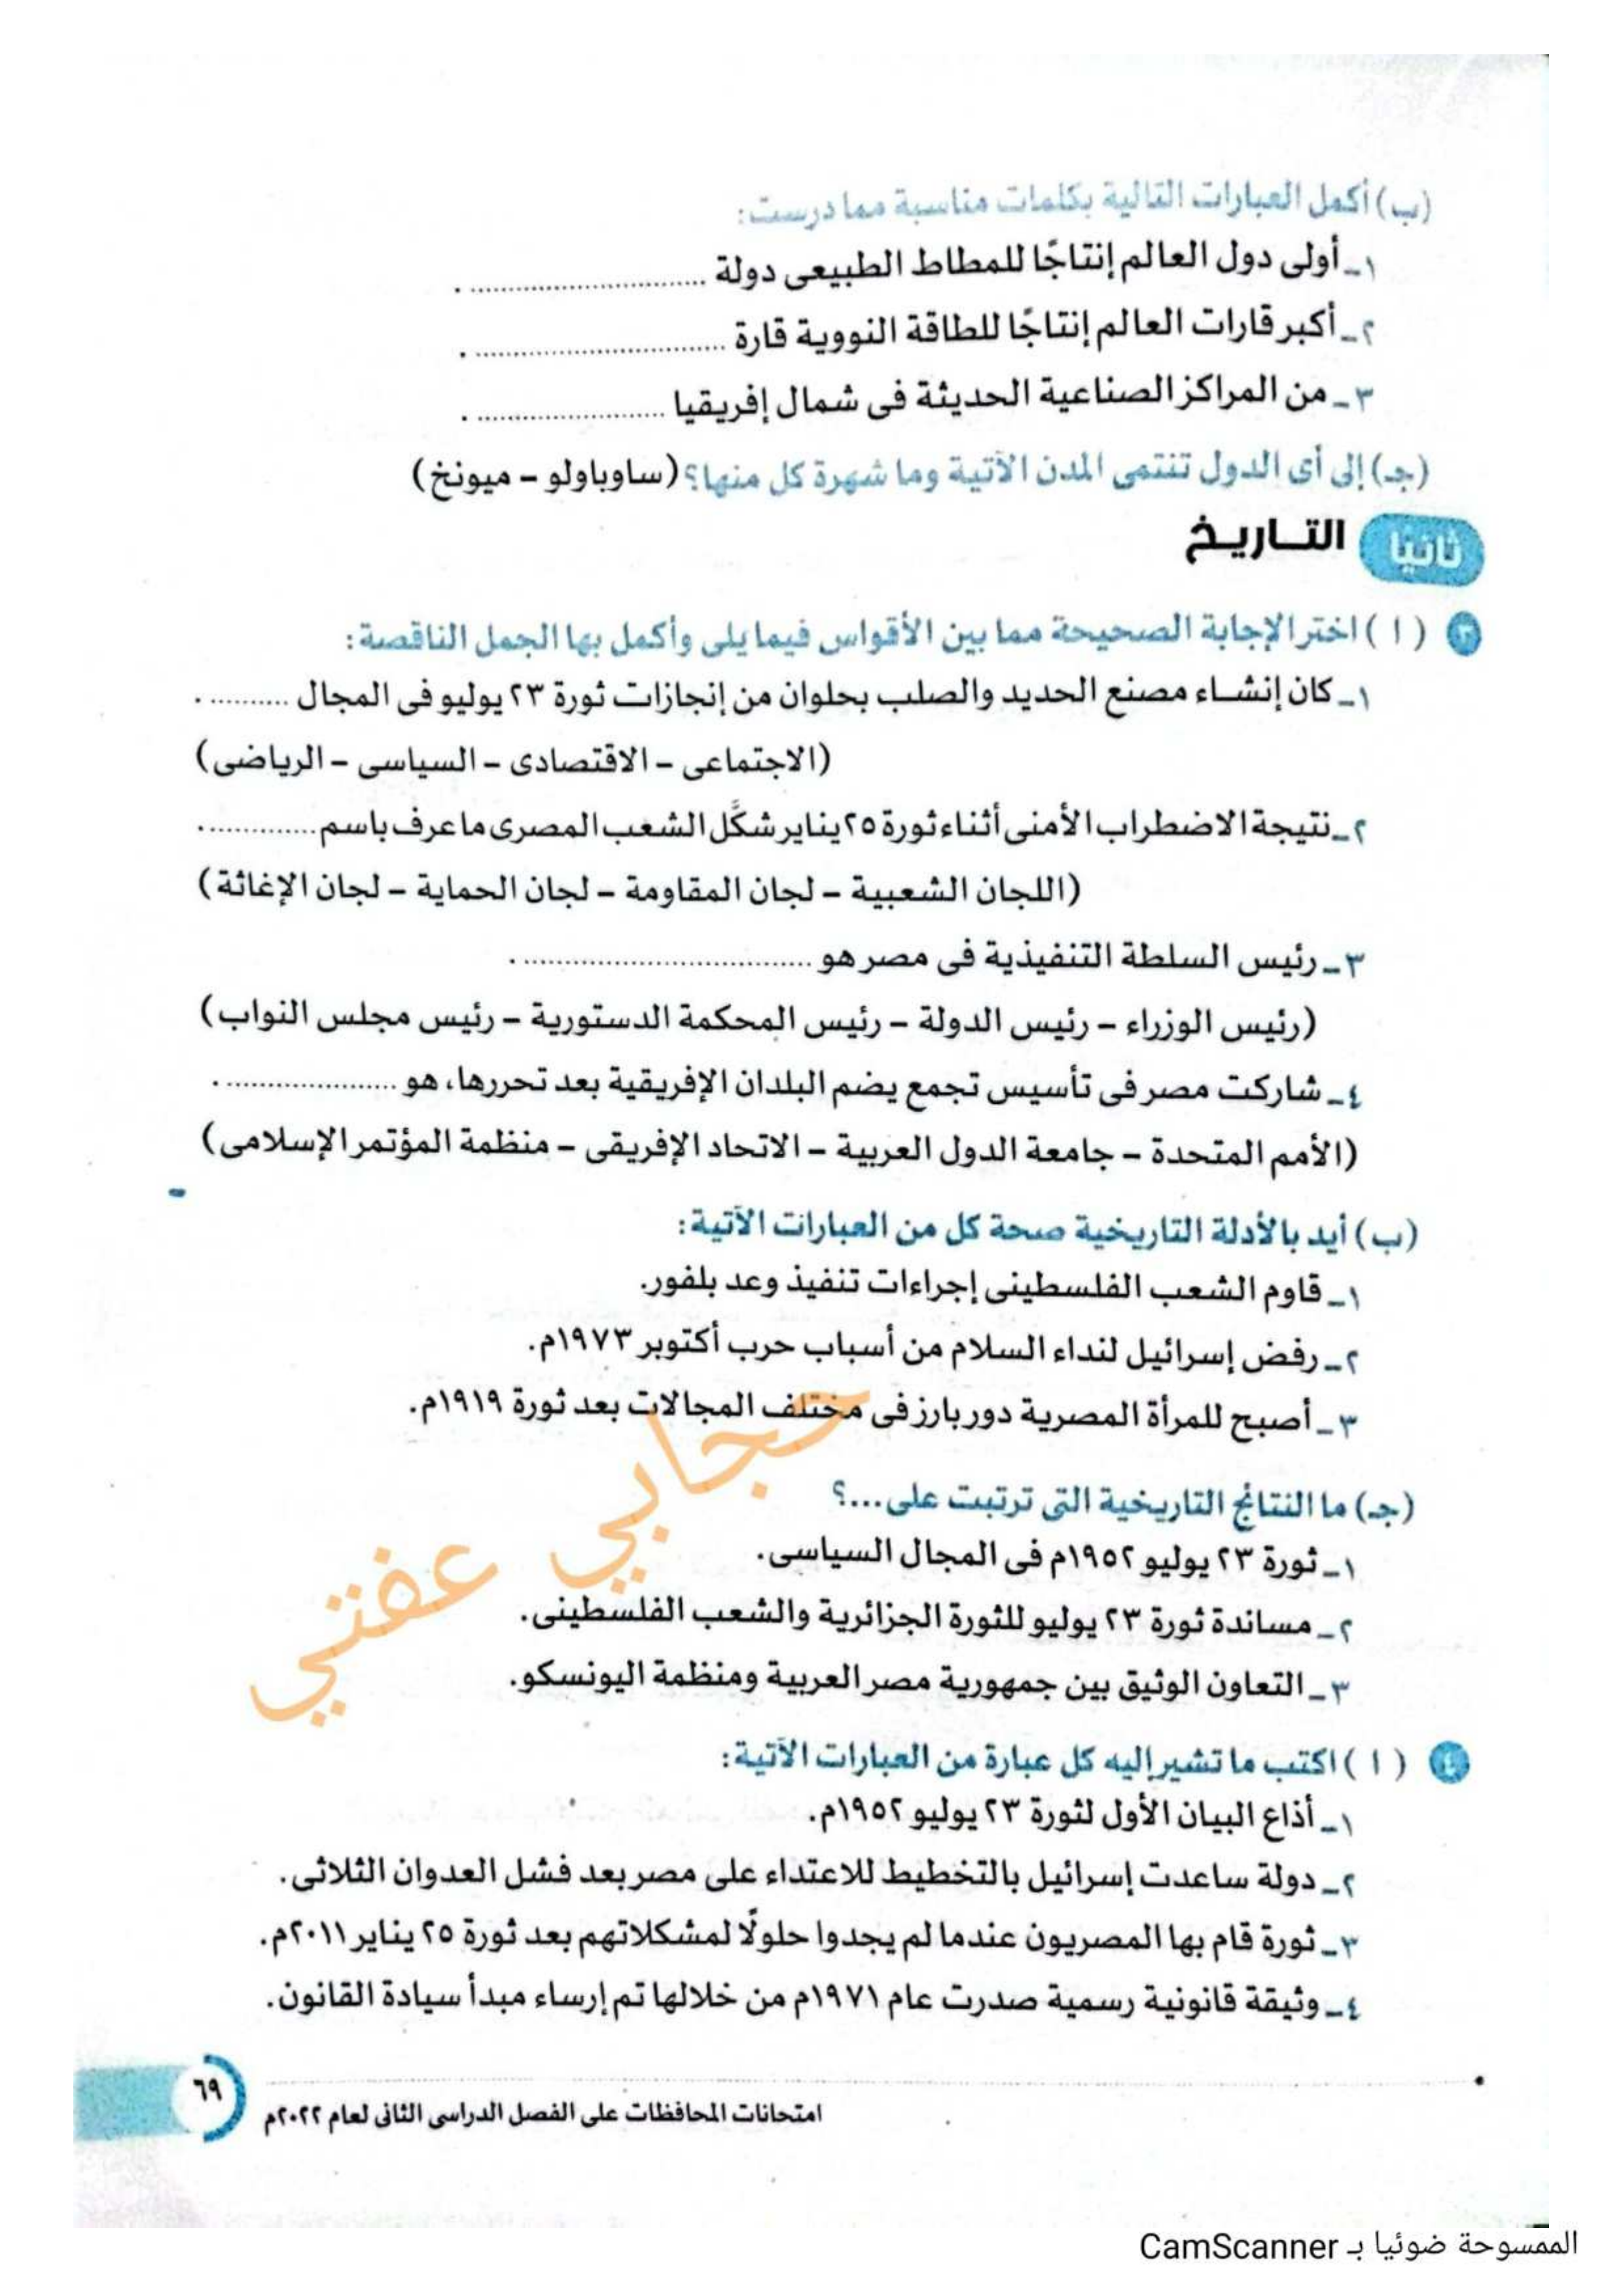 (ب) أكمل العبارات التالية بكلمات مناسبة مما درست:
١ـ أولى دول العالم إنتاجًا للمطاط الطبيعى دولة .............................. .
٢ـ أكبر قارات العالم إنتاجًا للطاقة النووية قارة .............................. .
٣ـ من المراكز الصناعية الحديثة فى شمال إفريقيا ...................... .
(جـ) إلى أى الدول تنتمى المدن الآتية وما شهرة كل منها؟ (ساوباولو – ميونخ)
ثانيًا التـاريـخ
٣ ( ا ) اختر الإجابة الصحيحة مما بين الأقواس فيما يلى وأكمل بها الجمل الناقصة:
١ـ كان إنشـاء مصنع الحديد والصلب بحلوان من إنجازات ثورة ٢٣ يوليو فى المجال .......... .
(الاجتماعى – الاقتصادى – السياسى – الرياضى)
٢ـ نتيجة الاضطراب الأمنى أثناء ثورة ٢٥ يناير شكَّل الشعب المصرى ما عرف باسم ............. .
(اللجان الشعبية – لجان المقاومة – لجان الحماية – لجان الإغاثة)
٣ـ رئيس السلطة التنفيذية فى مصر هو ................................... .
(رئيس الوزراء – رئيس الدولة – رئيس المحكمة الدستورية – رئيس مجلس النواب)
٤ـ شاركت مصر فى تأسيس تجمع يضم البلدان الإفريقية بعد تحررها، هو .................... .
(الأمم المتحدة – جامعة الدول العربية – الاتحاد الإفريقى – منظمة المؤتمر الإسلامى)
(ب) أيد بالأدلة التاريخية صحة كل من العبارات الآتية:
١ـ قاوم الشعب الفلسطينى إجراءات تنفيذ وعد بلفور.
٢ـ رفض إسرائيل لنداء السلام من أسباب حرب أكتوبر ١٩٧٣م.
٣ـ أصبح للمرأة المصرية دور بارز فى مختلف المجالات بعد ثورة ١٩١٩م.
(جـ) ما النتائج التاريخية التى ترتبت على...؟
١ـ ثورة ٢٣ يوليو ١٩٥٢م فى المجال السياسى.
٢ـ مساندة ثورة ٢٣ يوليو للثورة الجزائرية والشعب الفلسطينى.
٣ـ التعاون الوثيق بين جمهورية مصر العربية ومنظمة اليونسكو.
حجابي عفتي
٤ ( ا ) اكتب ما تشير إليه كل عبارة من العبارات الآتية:
١ـ أذاع البيان الأول لثورة ٢٣ يوليو ١٩٥٢م.
٢ـ دولة ساعدت إسرائيل بالتخطيط للاعتداء على مصر بعد فشل العدوان الثلاثى.
٣ـ ثورة قام بها المصريون عندما لم يجدوا حلولًا لمشكلاتهم بعد ثورة ٢٥ يناير ٢٠١١م.
٤ـ وثيقة قانونية رسمية صدرت عام ١٩٧١م من خلالها تم إرساء مبدأ سيادة القانون.
امتحانات المحافظات على الفصل الدراسى الثانى لعام ٢٠٢٢م ٦٩
الممسوحة ضوئيا بـ CamScanner